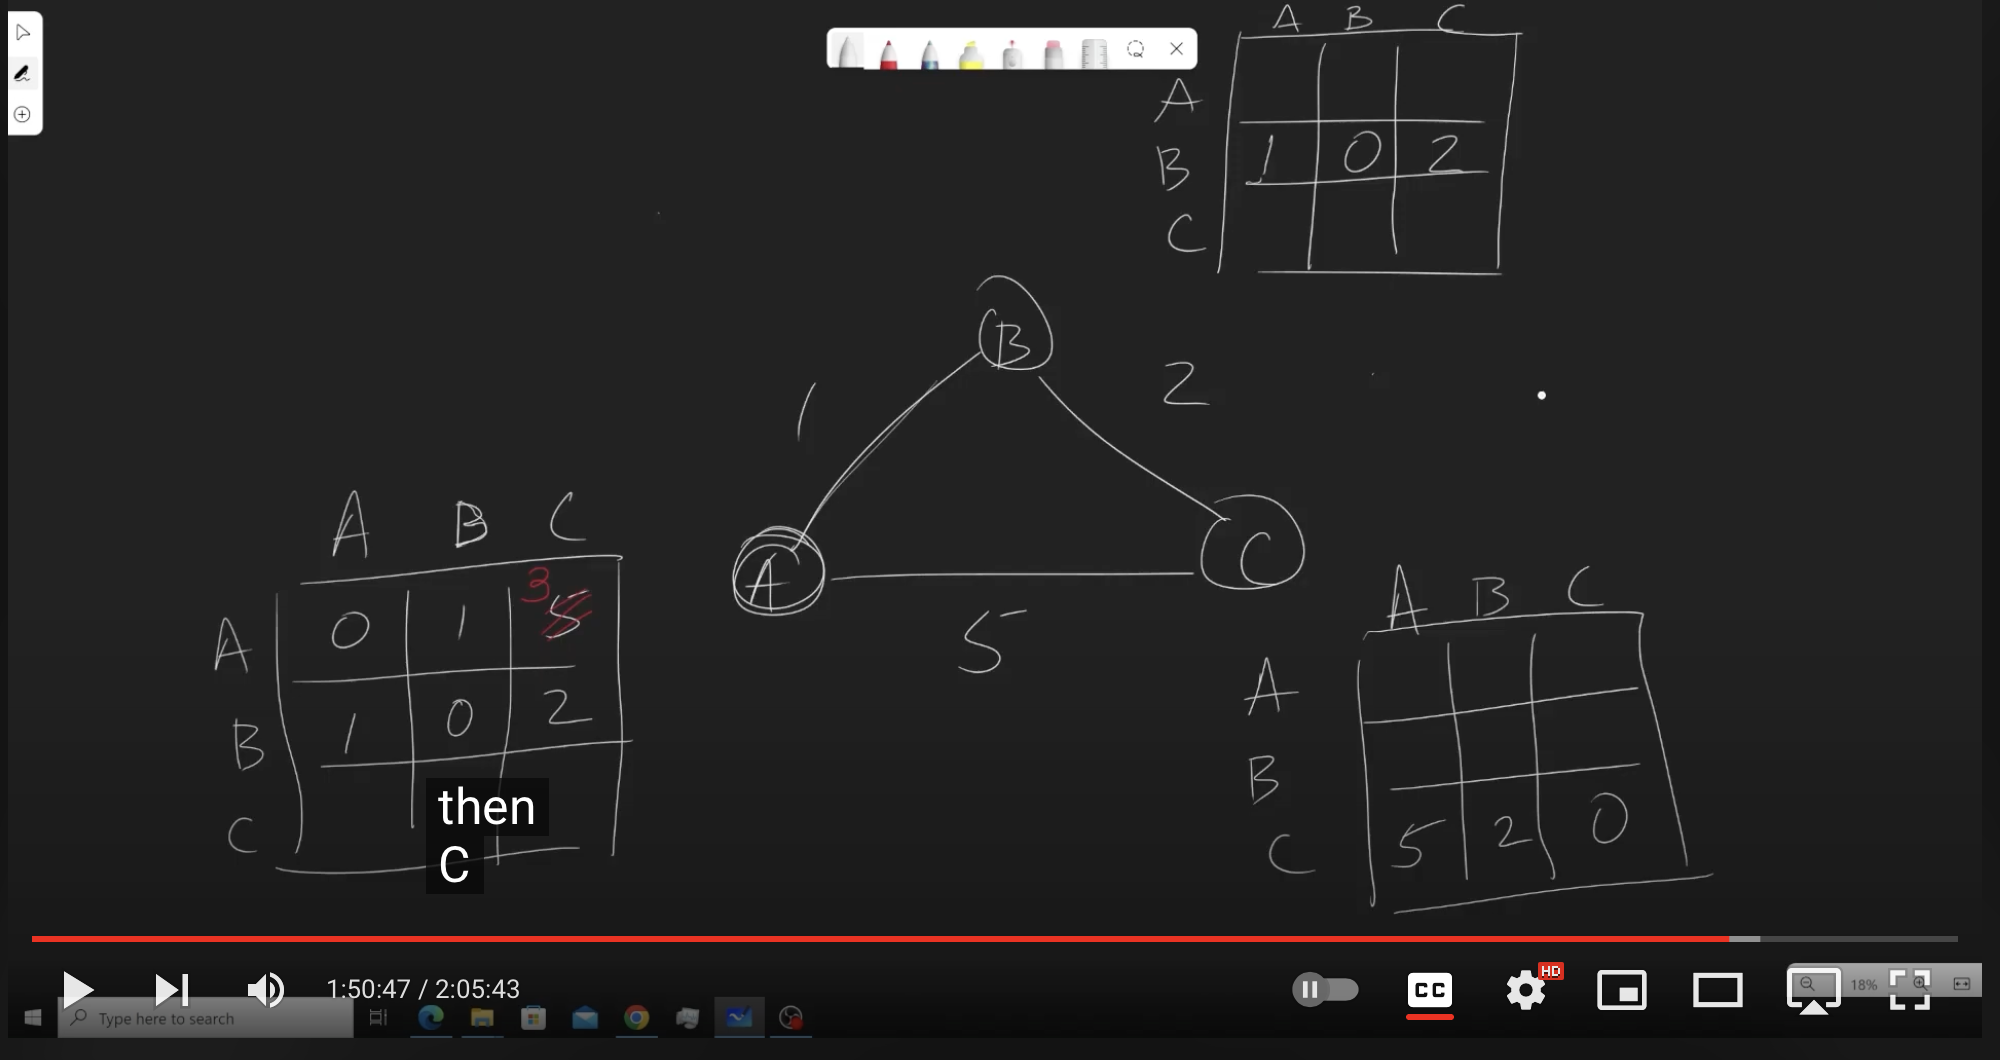 A B C
A
B 1 0 2
C
B
1
2
A
C
5
A B C
A 0 1 3 5
B 1 0 2
C
then
C
A B C
A
B
C 5 2 0
1:50:47 / 2:05:43
CC
HD
18%
Type here to search